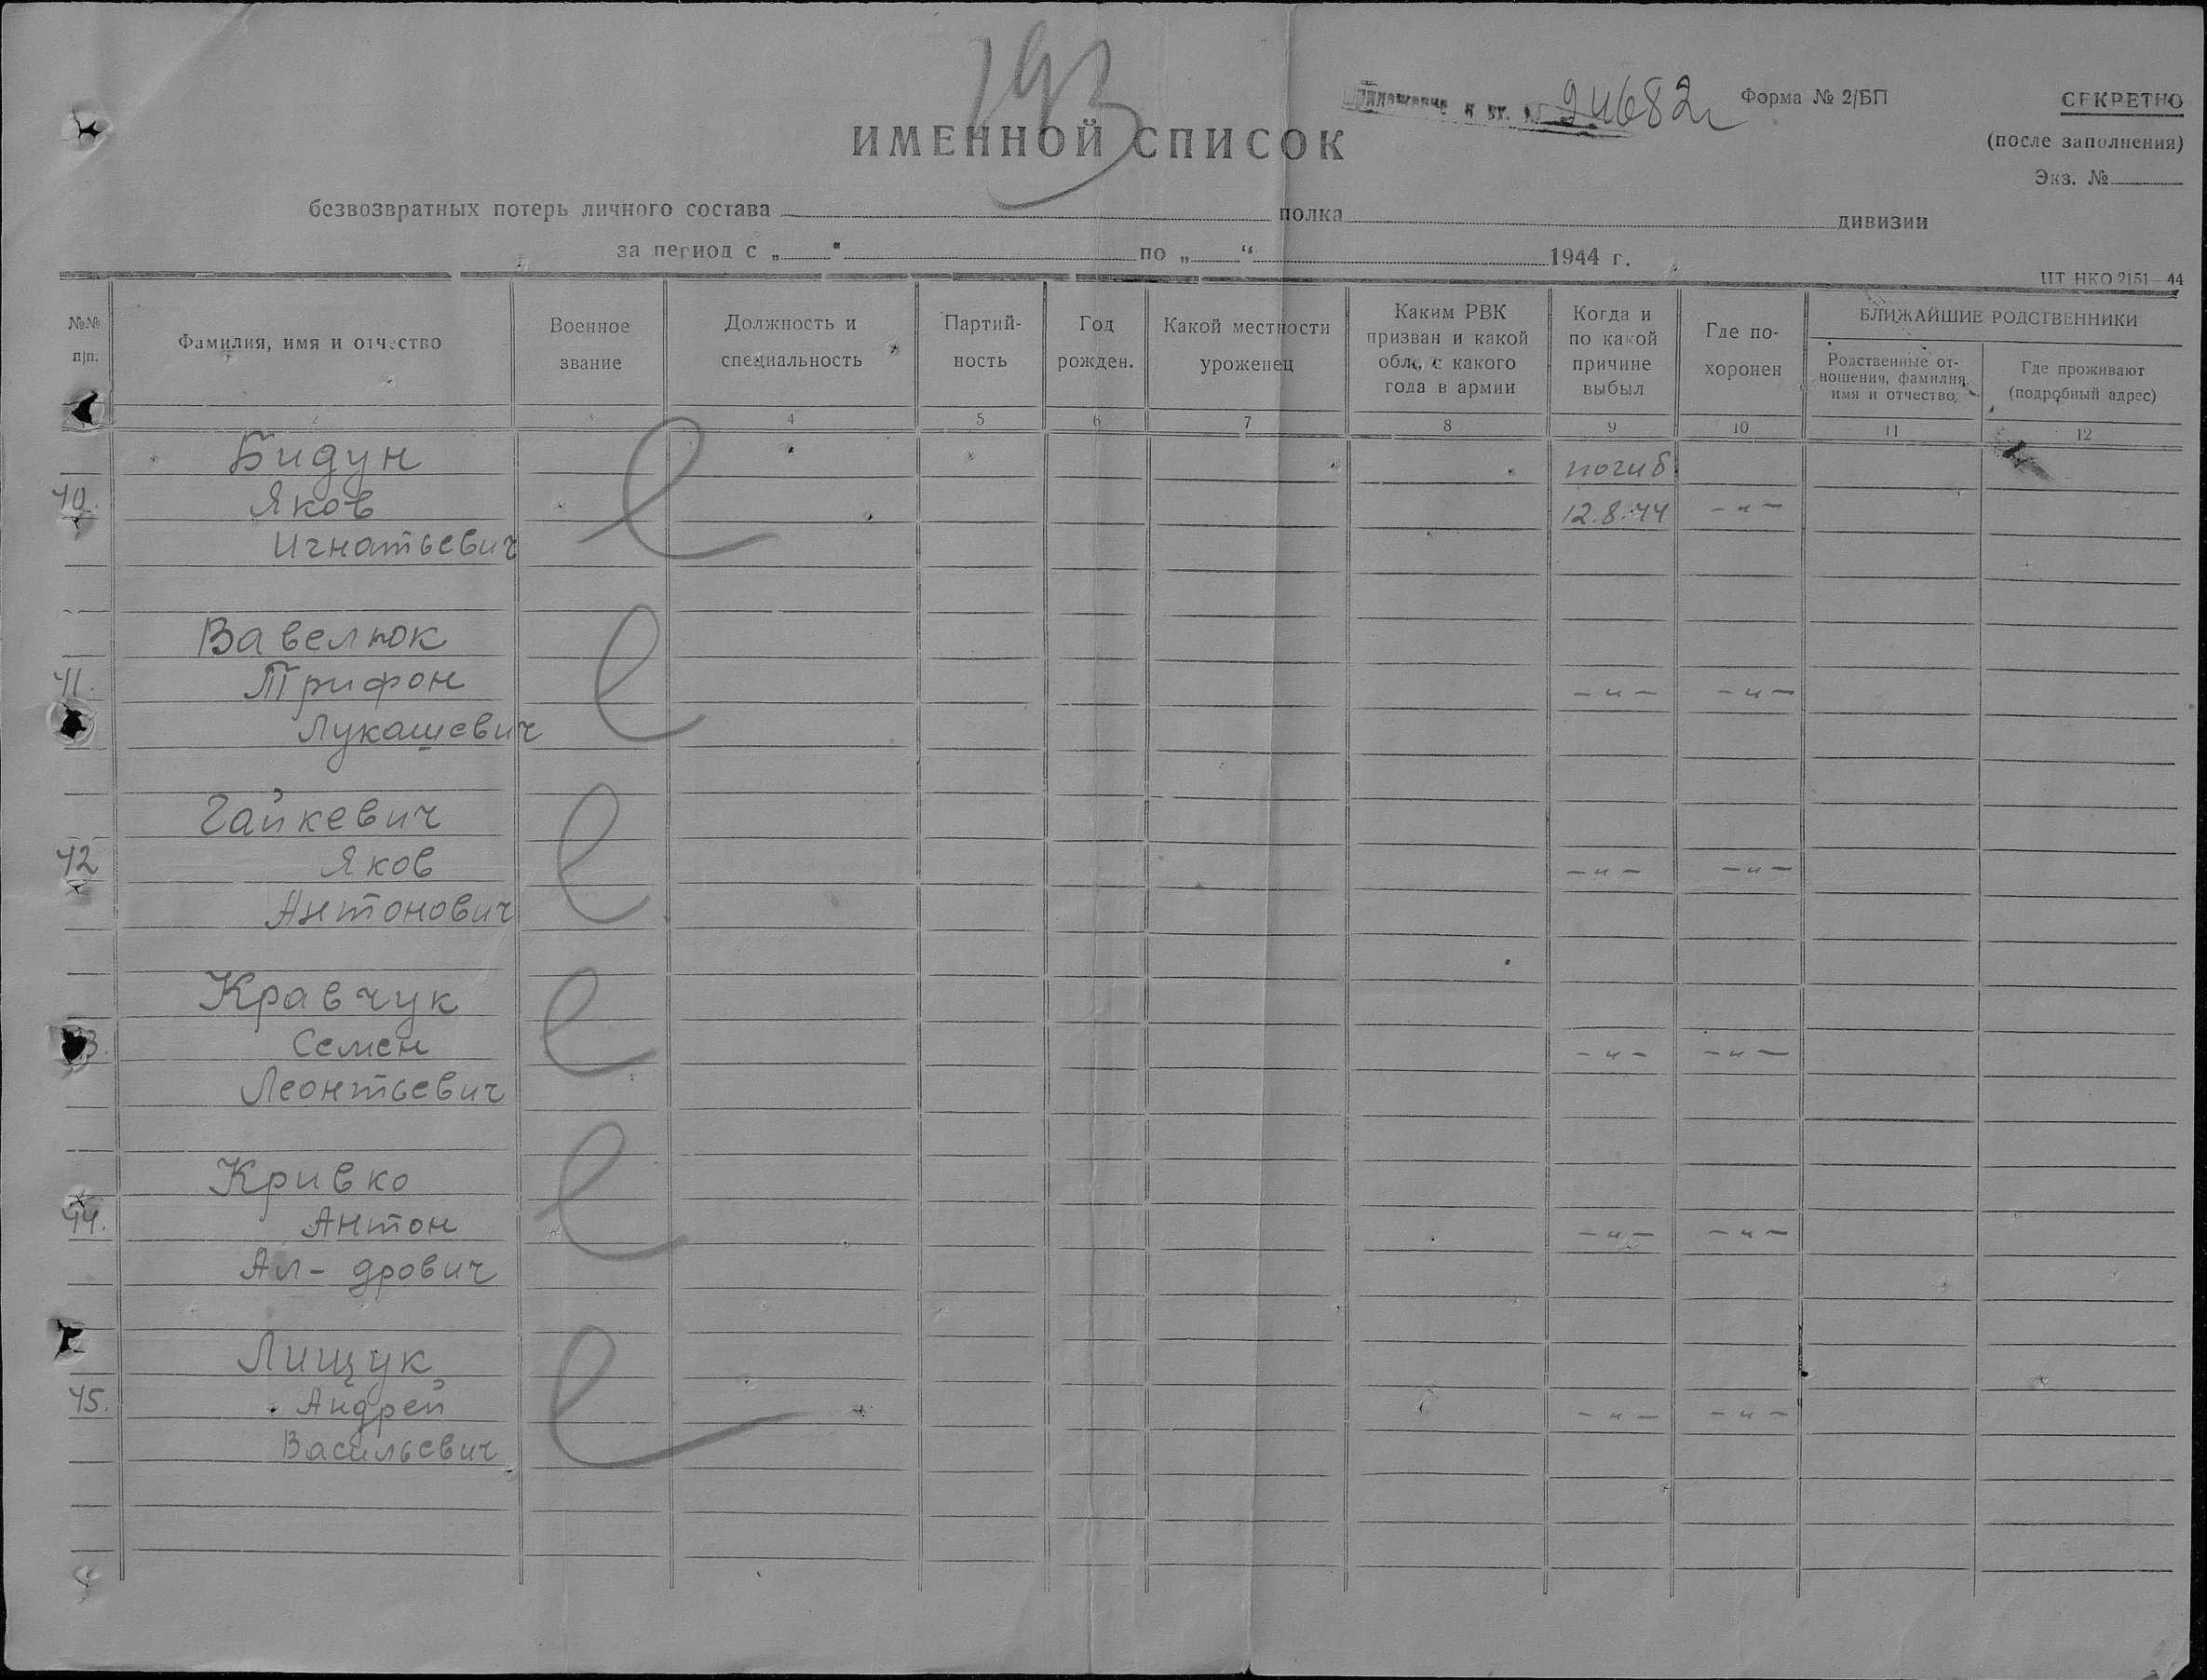 193
Приложение к вх. № 24682с Форма № 2/БП СЕКРЕТНО
ИМЕННОЙ СПИСОК
(после заполнения)
Экз. №
безвозвратных потерь личного состава полка дивизии
за период с „ “ по „ “ 1944 г.
ЦТ НКО 2151—44
№№ п/п.
Фамилия, имя и отчество
Военное звание
Должность и специальность
Партийность
Год рожден.
Какой местности уроженец
Каким РВК призван и какой обл., с какого года в армии
Когда и по какой причине выбыл
Где похоронен
БЛИЖАЙШИЕ РОДСТВЕННИКИ
Родственные отношения, фамилия, имя и отчество
Где проживают (подробный адрес)
2 3 4 5 6 7 8 9 10 11 12
Бидун погиб
40. Яков 12.8.44 -"-
Игнатьевич
Вавелюк
41. Трифон -"- -"-
Лукашевич
Гайкевич
42 Яков -"- -"-
Антонович
Кравчук
43. Семен -"- -"-
Леонтьевич
Кривко
44. Антон -"- -"-
Ал-дрович
Лищук
45. Андрей -"- -"-
Васильевич